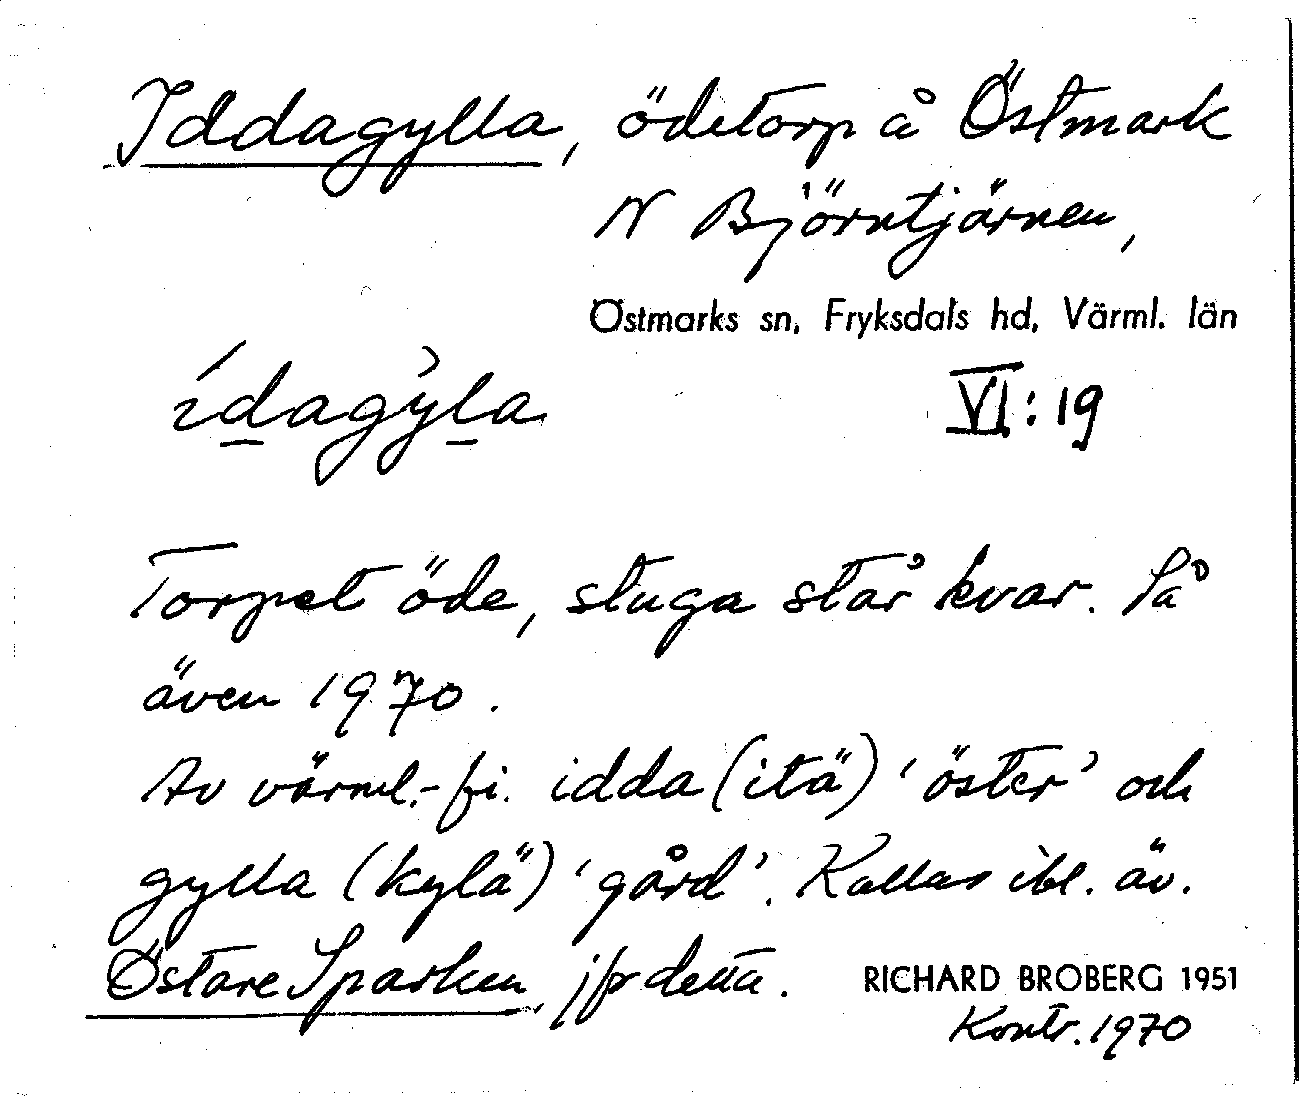 Iddagylla, ödetorp å Östmark
N Björntjärnen,
Östmarks sn, Fryksdals hd, Värml. län
ídagỳla
VI: 19
Torpet öde, stuga står kvar. Så
även 1970.
Av värml.-fi. idda (itä) 'öster' och
gylla (kylä) 'gård'. Kallas ibl. äv.
Östare Sparken, jfr detta.
RICHARD BROBERG 1951
Kontr. 1970